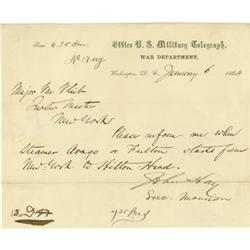 Time 6.30 Pm
Office U. S. Military Telegraph,
WAR DEPARTMENT,
Washington, D. C., January 6 1864
Major Van Vliet
Quarter Master
New York
Please inform me when
Steamer Arago or Fulton starts from
New York to Hilton Head.
John Hay
Exec. Mansion